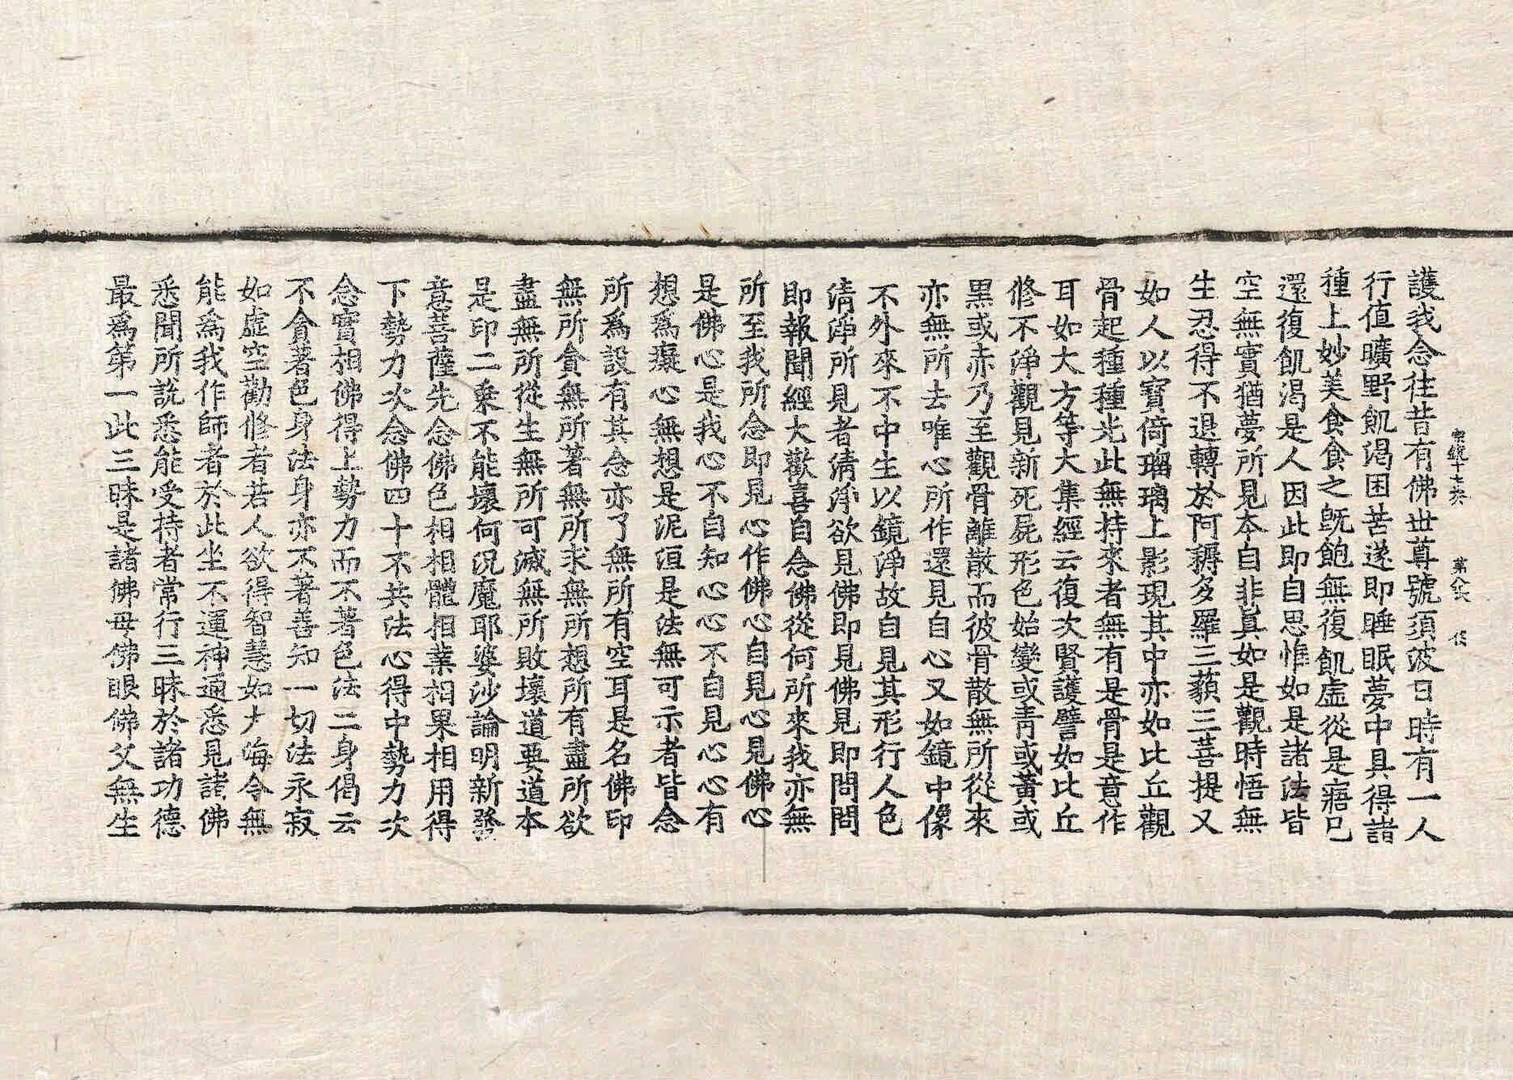 宗鏡十七卷 第八張 俊
護我念往昔有佛世尊號須波日時有一人
行值曠野飢渴困苦遂即睡眠夢中具得諸
種上妙美食食之既飽無復飢虛從是寤已
還復飢渴是人因此即自思惟如是諸法皆
空無實猶夢所見本自非真如是觀時悟無
生忍得不退轉於阿耨多羅三藐三菩提又
如人以寶倚瑠璃上影現其中亦如比丘觀
骨起種種光此無持來者無有是骨是意作
耳如大方等大集經云復次賢護譬如比丘
修不淨觀見新死屍形色始變或青或黃或
黑或赤乃至觀骨離散而彼骨散無所從來
亦無所去唯心所作還見自心又如鏡中像
不外來不中生以鏡淨故自見其形行人色
清淨所見者清淨欲見佛即見佛見即問問
即報聞經大歡喜自念佛從何所來我亦無
所至我所念即見心作佛心自見心見佛心
是佛心是我心不自知心心不自見心心有
想為癡心無想是泥洹是法無可示者皆念
所為設有其念亦了無所有空耳是名佛印
無所貪無所著無所求無所想所有盡所欲
盡無所從生無所可滅無所敗壞道要道本
是印二乘不能壞何況魔耶婆沙論明新發
意菩薩先念佛色相相體相業相果相用得
下勢力次念佛四十不共法心得中勢力次
念實相佛得上勢力而不著色法二身偈云
不貪著色身法身亦不著善知一切法永寂
如虛空勸修者若人欲得智慧如大海令無
能為我作師者於此坐不運神通悉見諸佛
悉聞所說悉能受持者常行三昧於諸功德
最為第一此三昧是諸佛母佛眼佛父無生